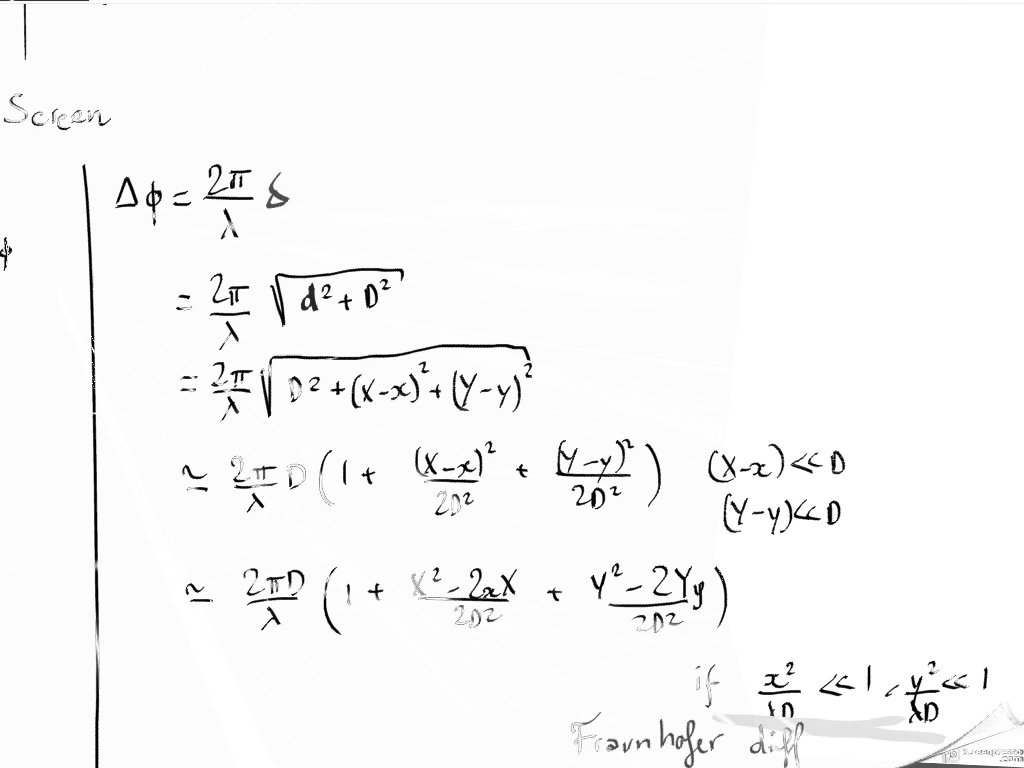 Screen
Δφ = 2π/λ δ
φ
= 2π/λ √(d² + D²)
= 2π/λ √(D² + (X-x)² + (Y-y)²)
≃ 2π/λ D (1 + (X-x)²/2D² + (Y-y)²/2D²) (X-x) ≪ D
(Y-y) ≪ D
≃ 2πD/λ (1 + X² - 2xX/2D² + Y² - 2Yy/2D²)
if x²/λD ≪ 1, y²/λD ≪ 1
Fraunhofer diff